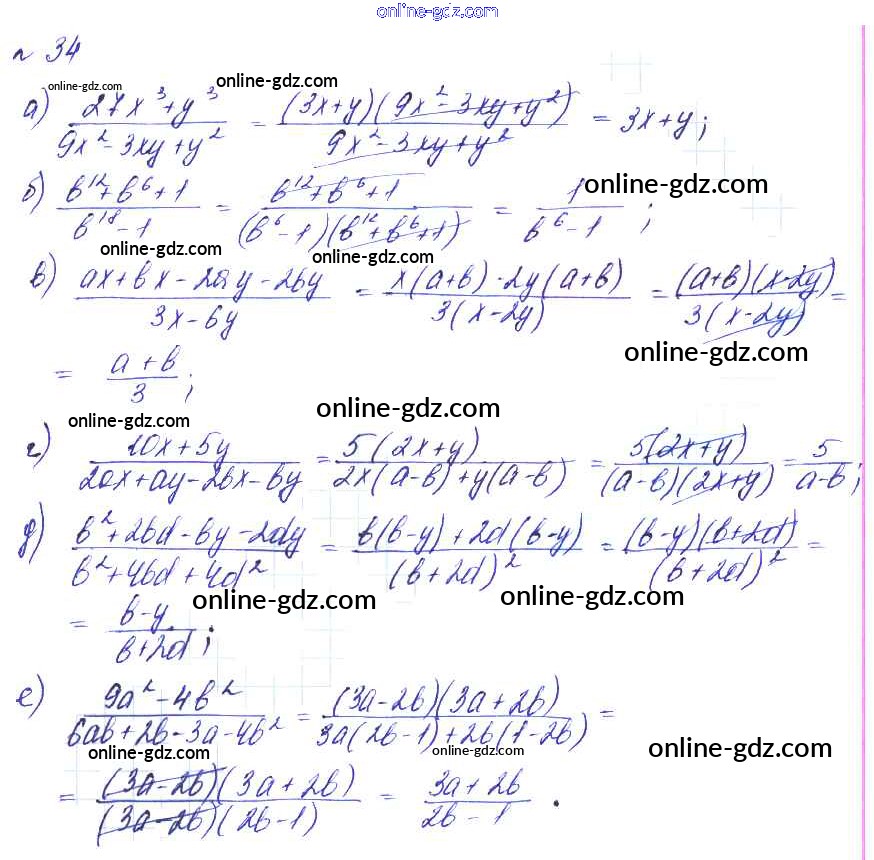 online-gdz.com
№ 34
online-gdz.com online-gdz.com
а) (27x³+y³)/(9x²-3xy+y²) = ((3x+y)(9x²-3xy+y²))/(9x²-3xy+y²) = 3x+y;
online-gdz.com
б) (b¹²+b⁶+1)/(b¹⁸-1) = (b¹²+b⁶+1)/((b⁶-1)(b¹²+b⁶+1)) = 1/(b⁶-1);
online-gdz.com online-gdz.com
в) (ax+bx-2ay-2by)/(3x-6y) = (x(a+b)-2y(a+b))/(3(x-2y)) = ((a+b)(x-2y))/(3(x-2y)) =
online-gdz.com
= (a+b)/3;
online-gdz.com online-gdz.com
online-gdz.com
г) (10x+5y)/(2ax+ay-2bx-by) = (5(2x+y))/(2x(a-b)+y(a-b)) = (5(2x+y))/((a-b)(2x+y)) = 5/(a-b);
д) (b²+2bd-by-2dy)/(b²+4bd+4d²) = (b(b-y)+2d(b-y))/((b+2d)²) = ((b-y)(b+2d))/((b+2d)²) =
online-gdz.com online-gdz.com
= (b-y)/(b+2d);
е) (9a²-4b²)/(6ab+2b-3a-4b²) = ((3a-2b)(3a+2b))/(3a(2b-1)+2b(1-2b)) =
online-gdz.com online-gdz.com online-gdz.com
= ((3a-2b)(3a+2b))/((3a-2b)(2b-1)) = (3a+2b)/(2b-1).